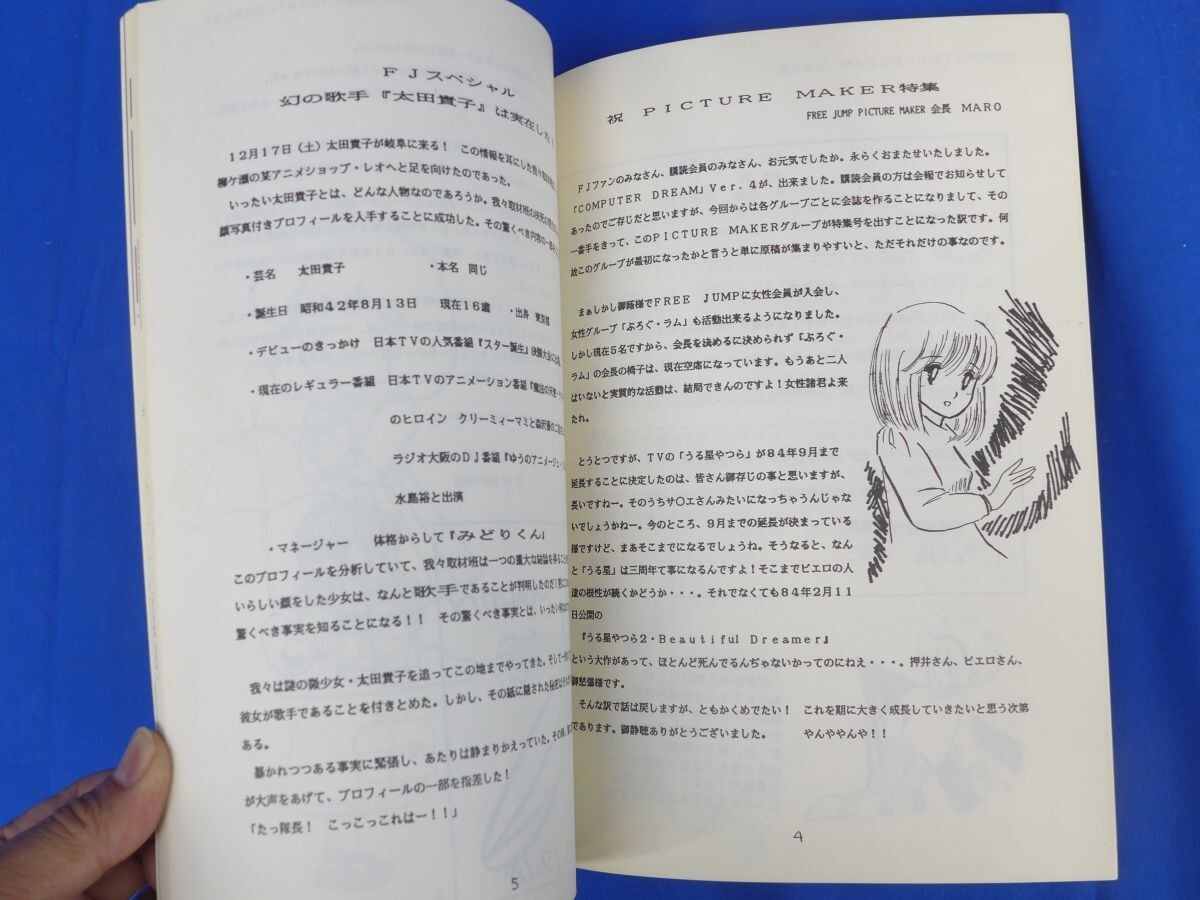 祝 PICTURE MAKER特集
FREE JUMP PICTURE MAKER 会長 MARO
FJファンのみなさん、購読会員のみなさん、お元気でしたか。永らくおまたせいたしました。
「COMPUTER DREAM」Ver.4が、出来ました。購読会員の方は会報でお知らせして
あったのでご存じだと思いますが、今回からは各グループごとに会誌を作ることになりまして、その
一番手をきって、このPICTURE MAKERグループが特集号を出すことになった訳です。何
故このグループが最初になったかと言うと単に原稿が集まりやすいと、ただそれだけの事なのです。
まぁしかし御蔭様でFREE JUMPに女性会員が入会し、
女性グループ「ぷろぐ・ラム」も活動出来るようになりました。
しかし現在5名ですから、会長を決めるに決められず「ぷろぐ・
ラム」の会長の椅子は、現在空席になっています。もうあと二人
はいないと実質的な活動は、結局できんのですよ！女性諸君よ来
たれ。
とうとつですが、TVの「うる星やつら」が84年9月まで
延長することに決定したのは、皆さん御存じの事と思いますが、
長いですねー。そのうちサ〇エさんみたいになっちゃうんじゃな
いでしょうかねー。今のところ、9月までの延長が決まっている
様ですけど、まあそこまでになるでしょうね。そうなると、なん
と「うる星」は三周年て事になるんですよ！そこまでピエロの人
達の根性が続くかどうか・・・。それでなくても84年2月11
日公開の
『うる星やつら2・Beautiful Dreamer』
という大作があって、ほとんど死んでるんぢゃないかってのにねえ・・・。押井さん、ピエロさん、
御愁傷様です。
そんな訳で話は戻しますが、ともかくめでたい！ これを期に大きく成長していきたいと思う次第
であります。御静聴ありがとうございました。 やんややんや！！
4
FJスペシャル
幻の歌手『太田貴子』は実在した！
12月17日（土）太田貴子が岐阜に来る！ この情報を耳にした我々取材班は、
柳ケ瀬の某アニメショップ・レオへと足を向けたのであった。
いったい太田貴子とは、どんな人物なのであろうか。我々取材班の決死の
顔写真付きプロフィールを入手することに成功した。その驚くべき内容の一部を
・芸名 太田貴子 ・本名 同じ
・誕生日 昭和42年8月13日 現在16歳 ・出身 東京都
・デビューのきっかけ 日本TVの人気番組『スター誕生』決勝大会に
・現在のレギュラー番組 日本TVのアニメーション番組『魔法の天使
のヒロイン クリーミィーマミと森沢優の
ラジオ大阪のDJ番組『ゆうのアニメージュ・
水島裕と出演
・マネージャー 体格からして『みどりくん』
このプロフィールを分析していて、我々取材班は一つの重大な結論を得る
いらしい顔をした少女は、なんと歌手であることが判明したのだ！
驚くべき事実を知ることになる！！ その驚くべき事実とは、いったい
我々は謎の微少女・太田貴子を追ってこの地までやってきた。そして
彼女が歌手であることを付きとめた。しかし、その紙に隠された秘密は
ある。
暴かれつつある事実に緊張し、あたりは静まりかえっていた。その時、
が大声をあげて、プロフィールの一部を指差した！
「たっ隊長！ こっこっこれはー！！」
5